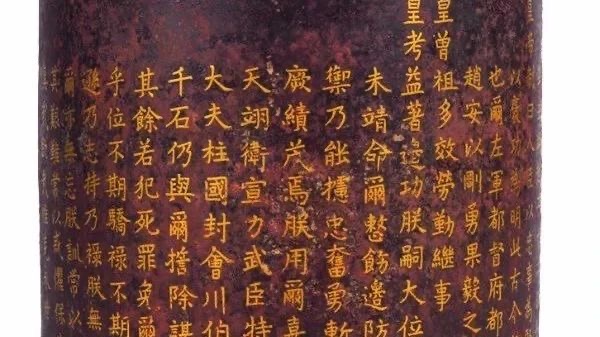 也爾左軍都督府都
趙安以剛勇果毅之
皇曾祖多效勞勤繼事
皇考益著邊功朕嗣大位
未靖命爾整飭邊防
禦乃能攄忠奮勇斬
厥績茂焉朕用爾嘉
天翊衛宣力武臣特
大夫柱國封會川伯
千石仍與爾誓除謀
其餘若犯死罪免爾
乎位不期驕祿不期
遜乃志持乃祿朕無
爾亦無忘朕訓尚以